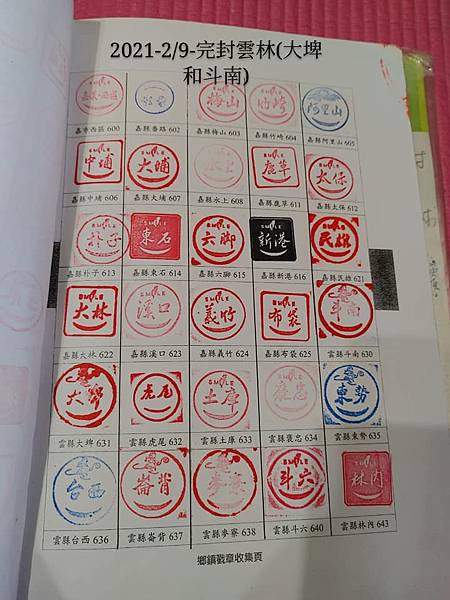 2021-2/9-完封雲林(大埤
和斗南)
梅山
竹崎
阿里山
嘉市西區 600
嘉縣番路 602
嘉縣梅山 603
嘉縣竹崎 604
嘉縣阿里山 605
SMILE 中埔
SMILE 大埔
水上
SMILE 鹿草
SMILE 太保
嘉縣中埔 606
嘉縣大埔 607
嘉縣水上 608
嘉縣鹿草 611
嘉縣太保 612
朴子
SMILE 東石
SMILE 六腳
SMILE 新港
SMILE 民雄
嘉縣朴子 613
嘉縣東石 614
嘉縣六腳 615
嘉縣新港 616
嘉縣民雄 621
SMILE 大林
溪口
SMILE 義竹
SMILE 布袋
斗南
嘉縣大林 622
嘉縣溪口 623
嘉縣義竹 624
嘉縣布袋 625
雲縣斗南 630
大埤
虎尾
SMILE 土庫
SMILE 褒忠
SMILE 東勢
雲縣大埤 631
雲縣虎尾 632
雲縣土庫 633
雲縣褒忠 634
雲縣東勢 635
台西
崙背
麥寮
SMILE 斗六
SMILE 林內
雲縣台西 636
雲縣崙背 637
雲縣麥寮 638
雲縣斗六 640
雲縣林內 643
鄉鎮戳章收集頁